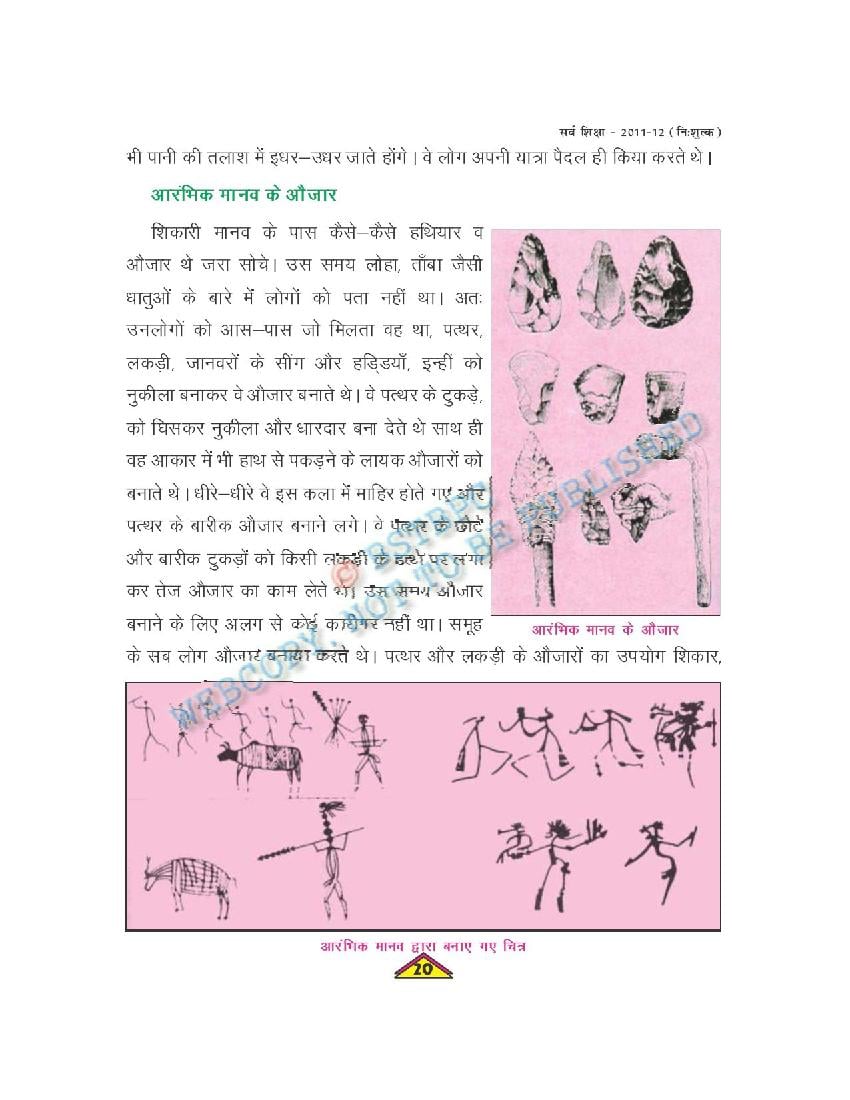 सर्व शिक्षा - 2011-12 ( निःशुल्क )
भी पानी की तलाश में इधर–उधर जाते होंगे। वे लोग अपनी यात्रा पैदल ही किया करते थे।
आरंभिक मानव के औजार
शिकारी मानव के पास कैसे–कैसे हथियार व
औजार थे जरा सोचे। उस समय लोहा, ताँबा जैसी
धातुओं के बारे में लोगों को पता नहीं था। अतः
उनलोगों को आस–पास जो मिलता वह था, पत्थर,
लकड़ी, जानवरों के सींग और हड्डियाँ, इन्हीं को
नुकीला बनाकर वे औजार बनाते थे। वे पत्थर के टुकड़े,
को घिसकर नुकीला और धारदार बना देते थे साथ ही
वह आकार में भी हाथ से पकड़ने के लायक औजारों को
बनाते थे। धीरे–धीरे वे इस कला में माहिर होते गए और
पत्थर के बारीक औजार बनाने लगे। वे पत्थर के छोटे
और बारीक टुकड़ों को किसी लकड़ी के हत्थे पर लगा
कर तेज औजार का काम लेते थे। उस समय औजार
बनाने के लिए अलग से कोई कारीगर नहीं था। समूह
आरंभिक मानव के औजार
के सब लोग औजार बनाया करते थे। पत्थर और लकड़ी के औजारों का उपयोग शिकार,
© BSTBPC
WEBCOPY, NOT TO BE PUBLISHED
आरंभिक मानव द्वारा बनाए गए चित्र
20